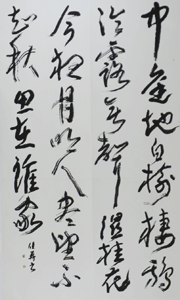 中庭地白樹棲鴉
冷露無聲濕桂花
今夜月明人盡望不
知秋思在誰家